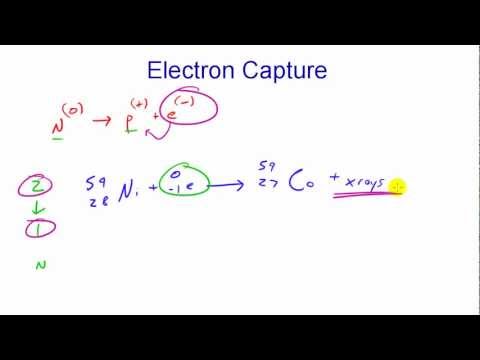 Electron Capture
N⁽⁰⁾ → P⁽⁺⁾ + e⁽⁻⁾
2 ⁵⁹₂₈Ni + ⁰₋₁e → ⁵⁹₂₇Co + x rays
↓
1
N